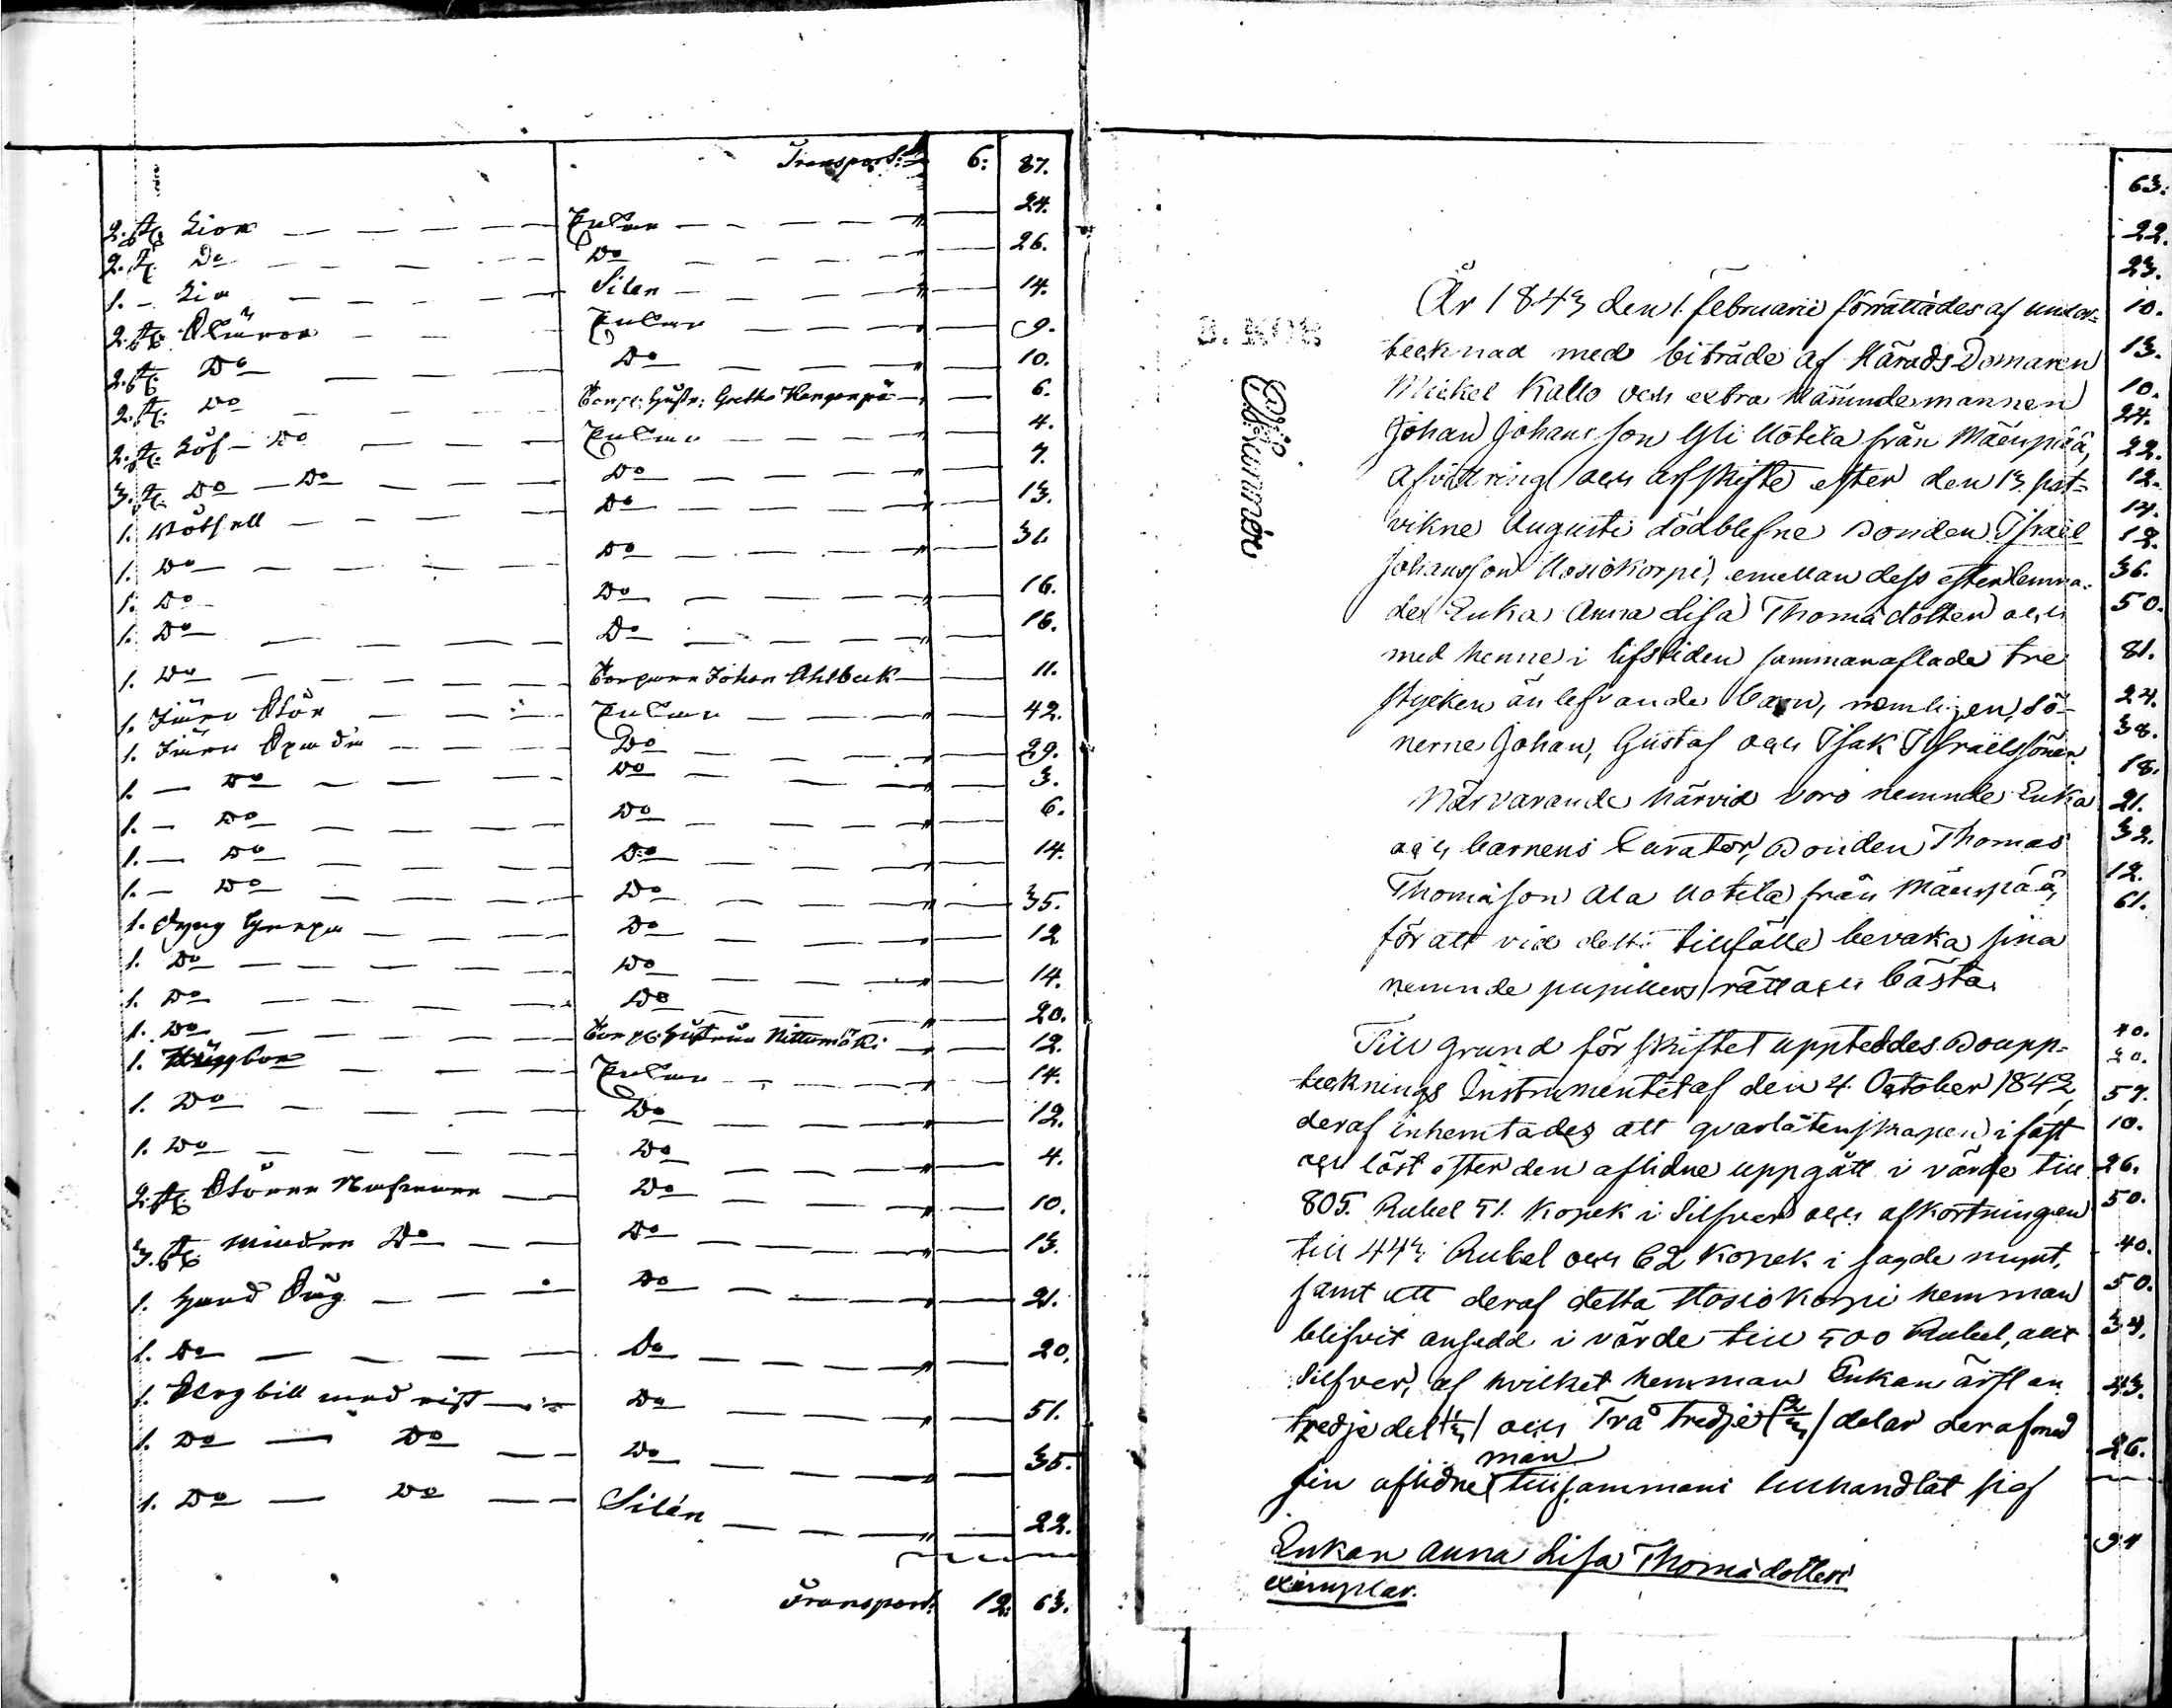 Transport: 6: 87.
2. st. Lior Pulan 24.
2. st. Do Do 26.
1. - Lia Silen 14.
2. st. Pulan 9.
2. st. Do Do 10.
2. st. Do Torp. Hustr: Gretha Kangenpä 6.
2. st. Löf - Do Pulan 4.
3. st. Do - Do Do 7.
1. Do 13.
1. Do Do 31.
1. Do Do 16.
1. Do Do 16.
1. Do Torparen Johan Ahlbeck 11.
1. Järn Stör Pulan 42.
1. Järn Spada Do 29.
1. - Do Do 3.
1. - Do Do 6.
1. - Do Do 14.
1. - Do Do 35.
1. Dyng Grepa Do 12
1. Do Do 14.
1. Do Do 20.
1. Do Torp: Hustrun Nittumäki 12.
1. Pulan 14.
1. Do Do 12.
1. Do Do 4.
2. st. Större Nafvare Do 10.
3. st. mindre Do Do 13.
1. Hand Såg Do 21.
1. Do Do 20.
1. Plogbill med rist Do 51.
1. Do - Do Do 35.
1. Do - Do Silén 22.
Transport: 12: 63.
År 1843 den 1. februarii förrättades af under=
tecknad med biträde af Härads Domaren
Michel Kallo och extra Nämndemannen
Johan Johansson Yli Uotila från Mäenpää,
Afvittring och arfskifte efter den 13. sist=
vikne Augusti dödblefne Bonden Israel
Johansson Uosiokorpi, emellan dess efterlemna=
de Enka Anna Lisa Thomādotter och
med henne i lifstiden sammanaflade tre
stycken än lefvande barn, nemligen, Sö=
nerne Johan, Gustaf och Isak Israelssöner.
Närvarande härvid voro nemnde Enka
och barnens Curator, Bonden Thomas
Thomasson Ala Uotila från Mäenpää,
för att vid detta tillfälle bevaka sina
nemnde pupillers rätt och bästa.
Till grund för skiftet uppteddes Boupp=
tecknings Instrumentet af den 4. October 1842,
deraf inhemtades att qvarlåtenskapen i fast
och löst efter den aflidne uppgått i värde till
805. Rubel 51. Kopek i Silfver och afkortningen
till 443 Rubel och 62 Kopek i sagde mynt,
samt att deraf detta Uosiokorpi hemman
blifvit ansedd i värde till 500 Rubel, allt
Silfver, af hvilket hemman Enkan ärft en
tredjedel (1/3) och Två tredje (2/3) delar deraf med
sin aflidne man tillsammans tillhandlat sig
Enkan Anna Lisa Thomādotters
exemplar.
63.
22.
23.
10.
13.
10.
24.
22.
12.
14.
12.
36.
50.
81.
24.
38.
18.
21.
32.
12.
61.
40.
20.
57.
10.
26.
50.
40.
50.
34.
43.
26.